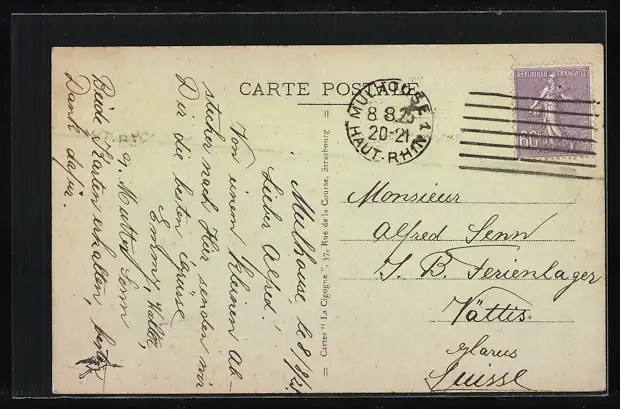 CARTE POSTALE
MULHOUSE
8 8.25
20-21
HAUT-RHIN
REPUBLIQUE FRANÇAISE
60c
Cartes "La Cigogne", 37, Rue de la Course, Strasbourg
Monsieur
Alfred Senn
J. B. Ferienlager
Vättis
Glarus
Suisse
Mulhouse, le 8/8/25
Lieber Alfred!
Von einem kleinen Ab-
stecher nach Hier senden wir
Dir die besten Grüsse
Emmy, Walter,
u. Mutter Senn
Beide Karten erhalten, besten
Dank dafür.